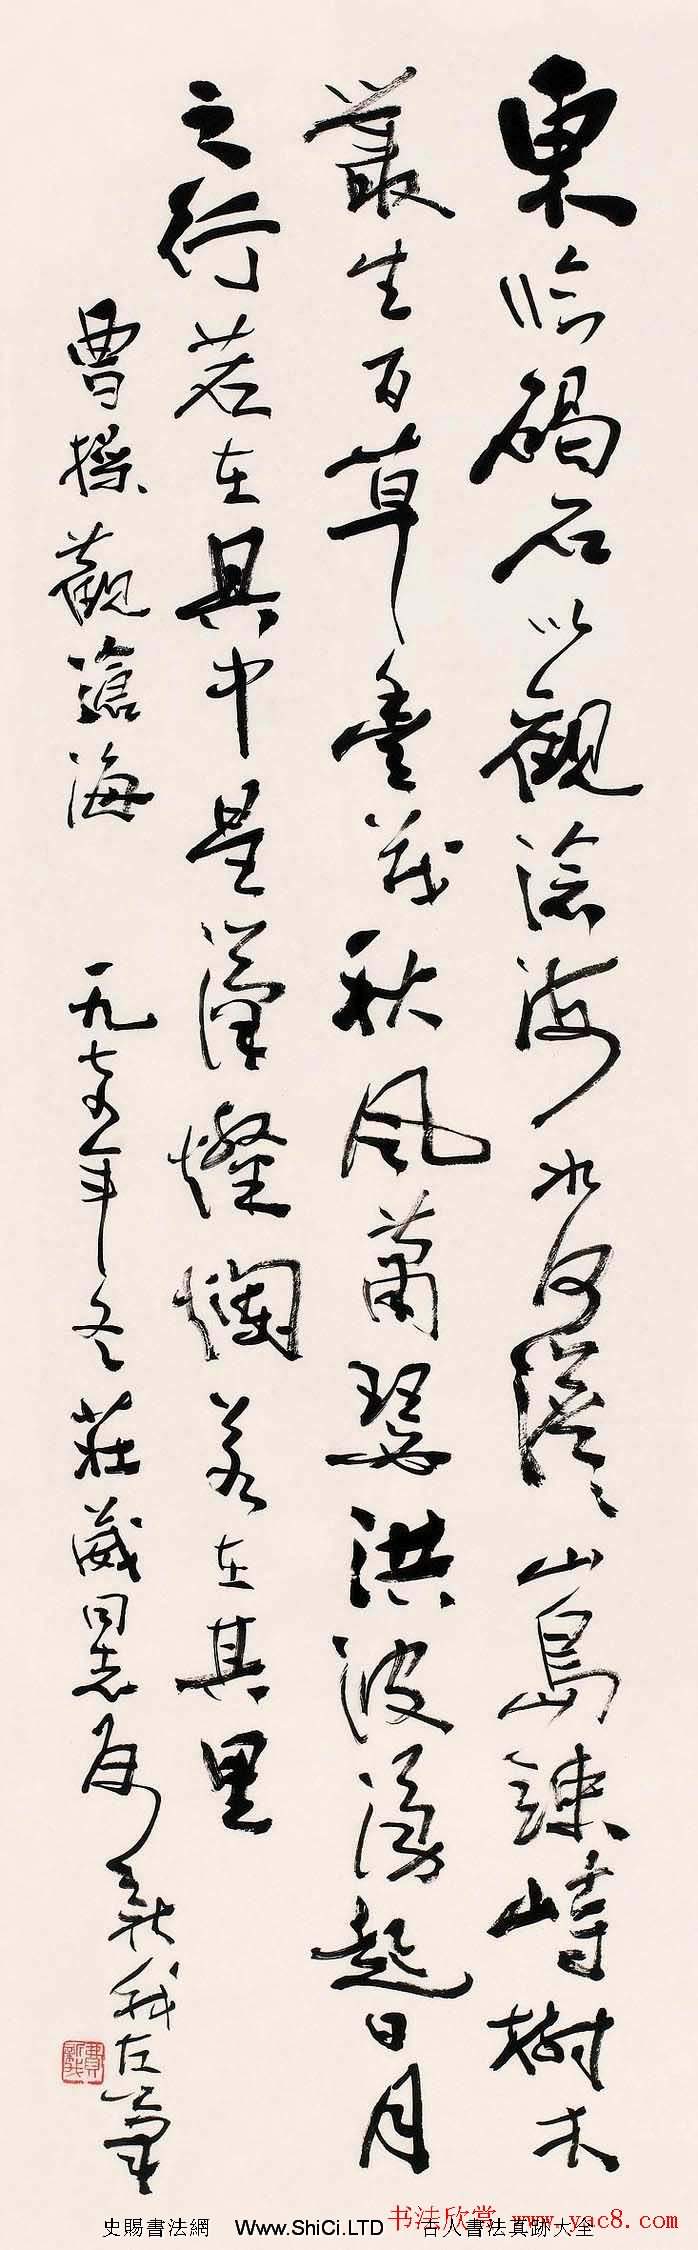 東臨碣石以觀滄海水何澹〻山島竦峙樹木
叢生百草豐茂秋風蕭瑟洪波湧起日月
之行若在其中星漢燦爛若在其里
曹操觀滄海 一九七五年冬 莊葳同志屬 新我左筆
費新我
史賜書法網 Www.ShiCi.LTD 古人書法真跡大全
书法欣赏 www.yac8.com